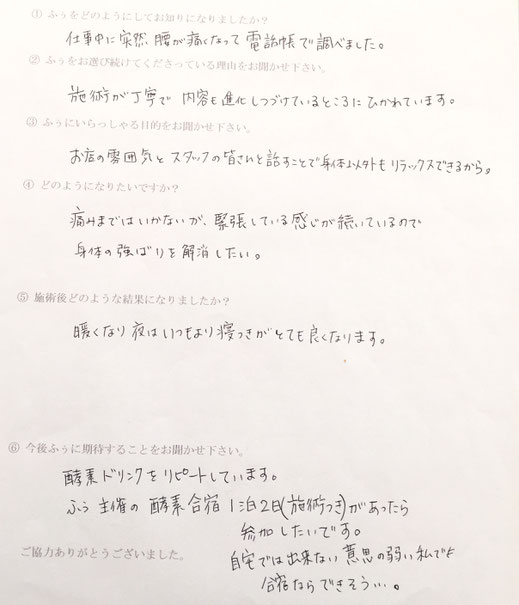 ① ふぅをどのようにしてお知りになりましたか？
仕事中に突然 腰が痛くなって 電話帳で調べました。
② ふぅをお選び続けてくださっている理由をお聞かせ下さい。
施術が丁寧で 内容も進化しつづけているところにひかれています。
③ ふぅにいらっしゃる目的をお聞かせ下さい。
お店の雰囲気とスタッフの皆さんと話すことで身体以外もリラックスできるから。
④ どのようになりたいですか？
痛みまではいかないが、緊張している感じが続いているので
身体の強ばりを解消したい。
⑤ 施術後どのような結果になりましたか？
暖くなり夜はいつもより寝つきがとても良くなります。
⑥ 今後ふぅに期待することをお聞かせ下さい。
酵素ドリンクをリピートしています。
ふぅ主催の酵素合宿 1泊2日(施術つき)があったら
参加したいです。
ご協力ありがとうございました。
自宅では出来ない意思の弱い私でも
合宿ならできそう…。